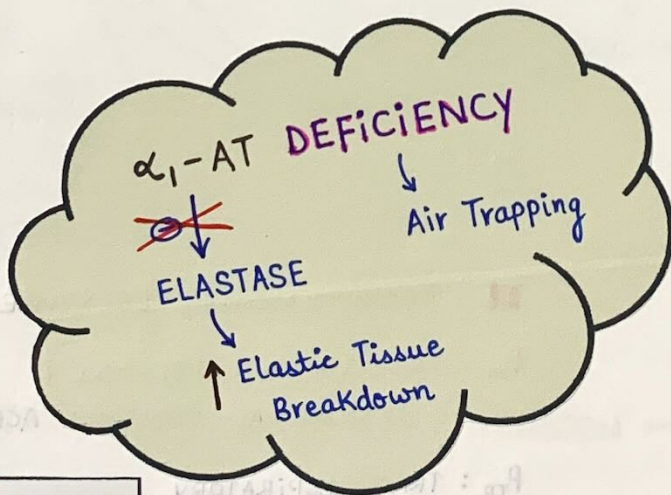 α₁-AT DEFiCiENCY
↓ ↓
⊖ Air Trapping
ELASTASE
↓
↑ Elastic Tissue
Breakdown